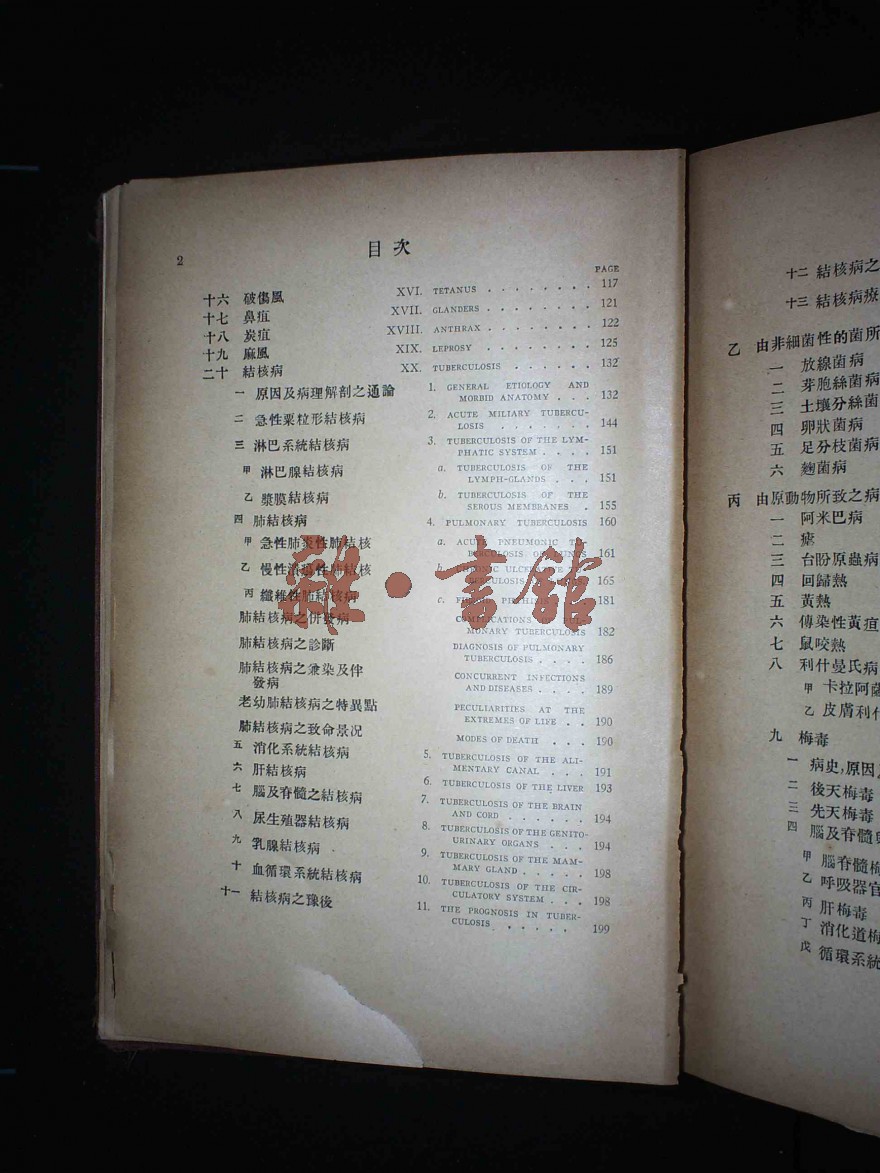 2
目次
PAGE
十六 破傷風 XVI. TETANUS . . . . . . . . 117
十七 鼻疽 XVII. GLANDERS . . . . . . . . 121
十八 炭疽 XVIII. ANTHRAX . . . . . . . . 122
十九 麻風 XIX. LEPROSY . . . . . . . . 125
二十 結核病 XX. TUBERCULOSIS . . . . . . 132
一 原因及病理解剖之通論 1. GENERAL ETIOLOGY AND
MORBID ANATOMY . . . 132
二 急性粟粒形結核病 2. ACUTE MILIARY TUBERCU-
LOSIS . . . . . . 144
三 淋巴系統結核病 3. TUBERCULOSIS OF THE LYM-
PHATIC SYSTEM . . . . 151
甲 淋巴腺結核病 a. TUBERCULOSIS OF THE
LYMPH-GLANDS . . . 151
乙 漿膜結核病 b. TUBERCULOSIS OF THE
SEROUS MEMBRANES . 155
四 肺結核病 4. PULMONARY TUBERCULOSIS 160
甲 急性肺炎性肺結核 a. ACUTE PNEUMONIC
161
乙 慢性潰瘍性肺結核 b.
165
丙 纖維性肺結核病 c. 181
肺結核病之併發病 COMPLICATIONS
MONARY TUBERCULOSIS 182
肺結核病之診斷 DIAGNOSIS OF PULMONARY
TUBERCULOSIS . . . . 186
肺結核病之兼染及伴 CONCURRENT INFECTIONS
發病 AND DISEASES . . . . 189
老幼肺結核病之特異點 PECULIARITIES AT THE
EXTREMES OF LIFE . . 190
肺結核病之致命景况 MODES OF DEATH . . . 190
五 消化系統結核病 5. TUBERCULOSIS OF THE ALI-
MENTARY CANAL . . . 191
六 肝結核病 6. TUBERCULOSIS OF THE LIVER 193
七 腦及脊髓之結核病 7. TUBERCULOSIS OF THE BRAIN
AND CORD . . . . . . 194
八 尿生殖器結核病 8. TUBERCULOSIS OF THE GENITO-
URINARY ORGANS . . . 194
九 乳腺結核病 9. TUBERCULOSIS OF THE MAM-
MARY GLAND . . . . . 198
十 血循環系統結核病 10. TUBERCULOSIS OF THE CIR-
CULATORY SYSTEM . . . 198
十一 結核病之豫後 11. THE PROGNOSIS IN TUBER-
CULOSIS . . . . . 199
雜·書館
十二 結核病之
十三 結核病療
乙 由非細菌性的菌所
一 放線菌病
二 芽胞絲菌病
三 土壤分絲菌
四 卵狀菌病
五 足分枝菌病
六 麴菌病
丙 由原動物所致之病
一 阿米巴病
二 瘧
三 台盼原蟲病
四 回歸熱
五 黃熱
六 傳染性黃疸
七 鼠咬熱
八 利什曼氏病
甲 卡拉阿薩
乙 皮膚利什
九 梅毒
一 病史,原因
二 後天梅毒
三 先天梅毒
四 腦及脊髓
甲 腦脊髓梅
乙 呼吸器官
丙 肝梅毒
丁 消化道梅
戊 循環系統